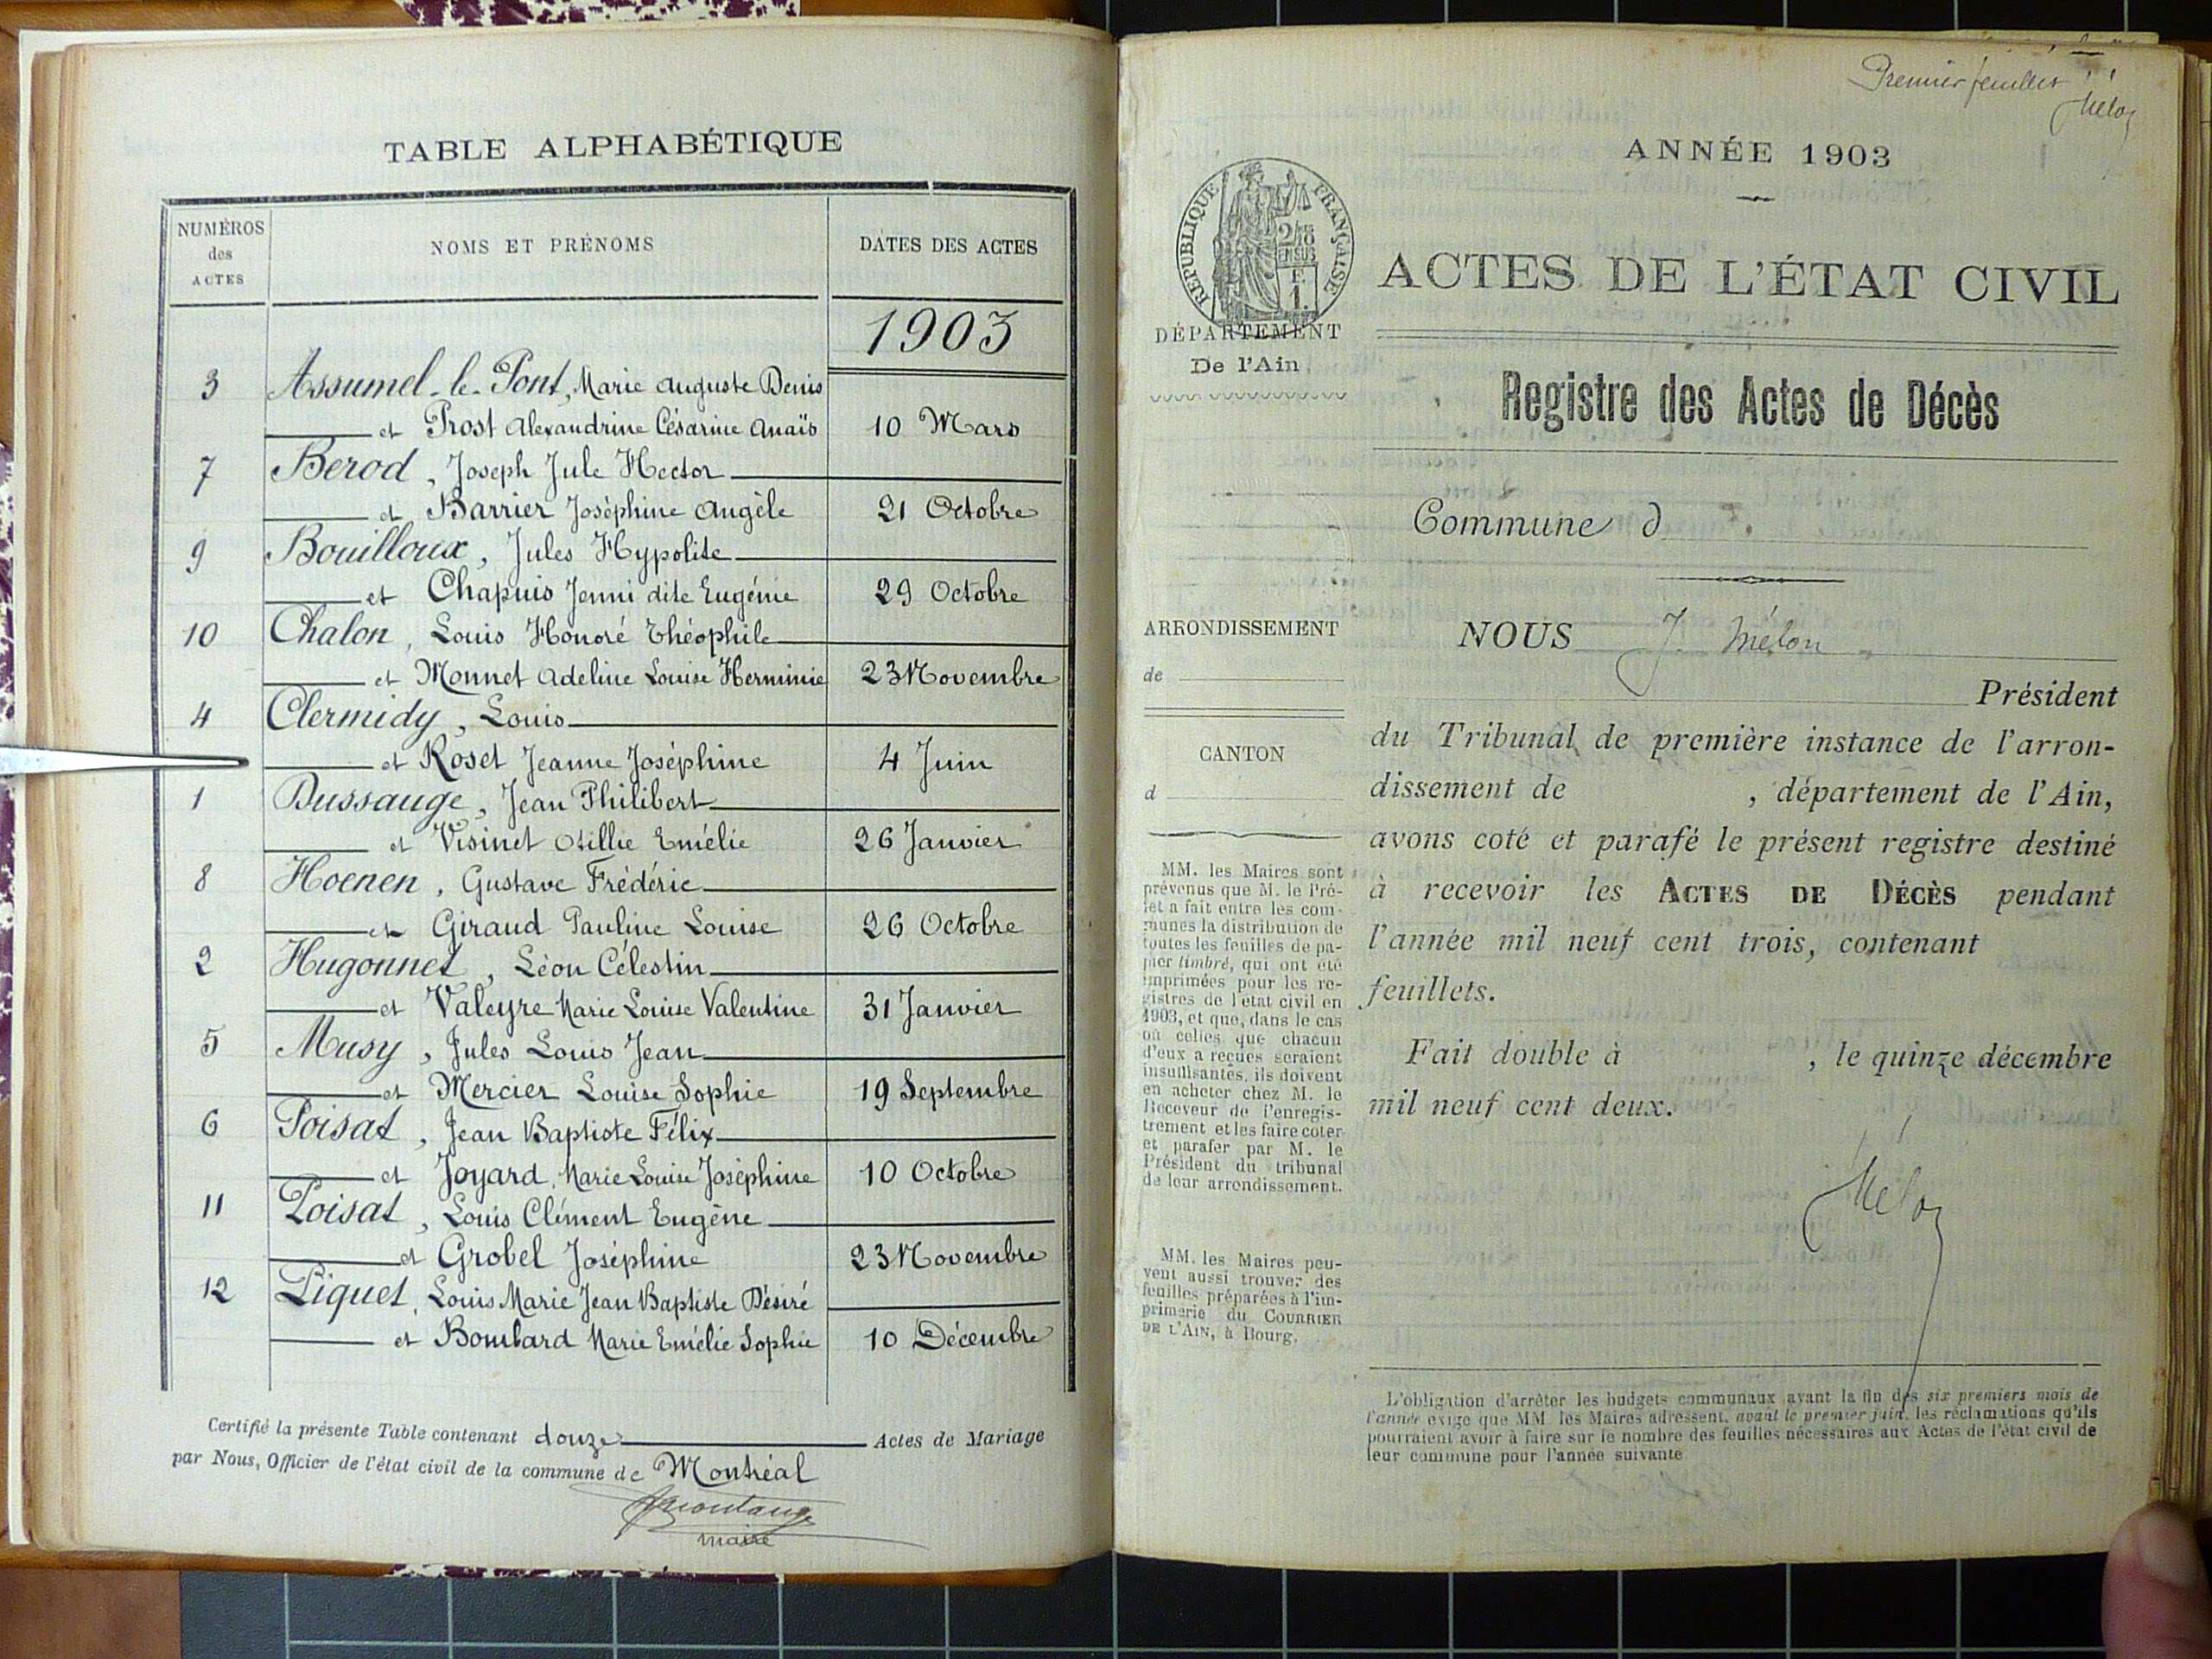 TABLE ALPHABÉTIQUE
NUMÉROS
des
ACTES
NOMS ET PRÉNOMS
DATES DES ACTES
1903
3 Assumel-le-Pont, Marie Auguste Denis
et Prost Alexandrine Césarine Anaïs 10 Mars
7 Berod, Joseph Jule Hector
et Barrier Joséphine Angèle 21 Octobre
9 Bouilloux, Jules Hypolite
et Chapuis Jenni dite Eugénie 29 Octobre
10 Chalon, Louis Honoré Théophile
et Monnet Adeline Louise Herminie 23 Novembre
4 Clermidy, Louis
et Roset Jeanne Joséphine 4 Juin
1 Dussauge, Jean Philibert
et Visinet Otillie Emélie 26 Janvier
8 Hoenen, Gustave Frédéric
et Giraud Pauline Louise 26 Octobre
2 Hugonnet, Léon Célestin
et Valeyre Marie Louise Valentine 31 Janvier
5 Musy, Jules Louis Jean
et Mercier Louise Sophie 19 Septembre
6 Poisat, Jean Baptiste Félix
et Joyard, Marie Louise Joséphine 10 Octobre
11 Poisat, Louis Clément Eugène
et Grobel Joséphine 23 Novembre
12 Piquet, Louis Marie Jean Baptiste Désiré
et Bombard Marie Emélie Sophie 10 Décembre
Certifié la présente Table contenant douze Actes de Mariage
par Nous, Officier de l'état civil de la commune de Montréal
maire
Premier feuillet
Mélon
ANNÉE 1903
RÉPUBLIQUE FRANÇAISE
ACTES DE L'ÉTAT CIVIL
DÉPARTEMENT
De l'Ain
Registre des Actes de Décès
Commune d
ARRONDISSEMENT
de
CANTON
d
MM. les Maires sont
prévenus que M. le Pré-
fet a fait entre les com-
munes la distribution de
toutes les feuilles de pa-
pier timbré, qui ont été
imprimées pour les re-
gistres de l'état civil en
1903, et que, dans le cas
où celles que chacun
d'eux a reçues seraient
insuffisantes, ils doivent
en acheter chez M. le
Receveur de l'enregis-
trement et les faire coter
et parafer par M. le
Président du tribunal
de leur arrondissement.
MM. les Maires peu-
vent aussi trouver des
feuilles préparées à l'im-
primerie du COURRIER
DE L'AIN, à Bourg.
NOUS J. Mélon
Président
du Tribunal de première instance de l'arron-
dissement de , département de l'Ain,
avons coté et parafé le présent registre destiné
à recevoir les ACTES DE DÉCÈS pendant
l'année mil neuf cent trois, contenant
feuillets.
Fait double à , le quinze décembre
mil neuf cent deux.
Mélon
L'obligation d'arrêter les budgets communaux avant la fin des six premiers mois de
l'année exige que MM. les Maires adressent, avant le premier juin, les réclamations qu'ils
pourraient avoir à faire sur le nombre des feuilles nécessaires aux Actes de l'état civil de
leur commune pour l'année suivante